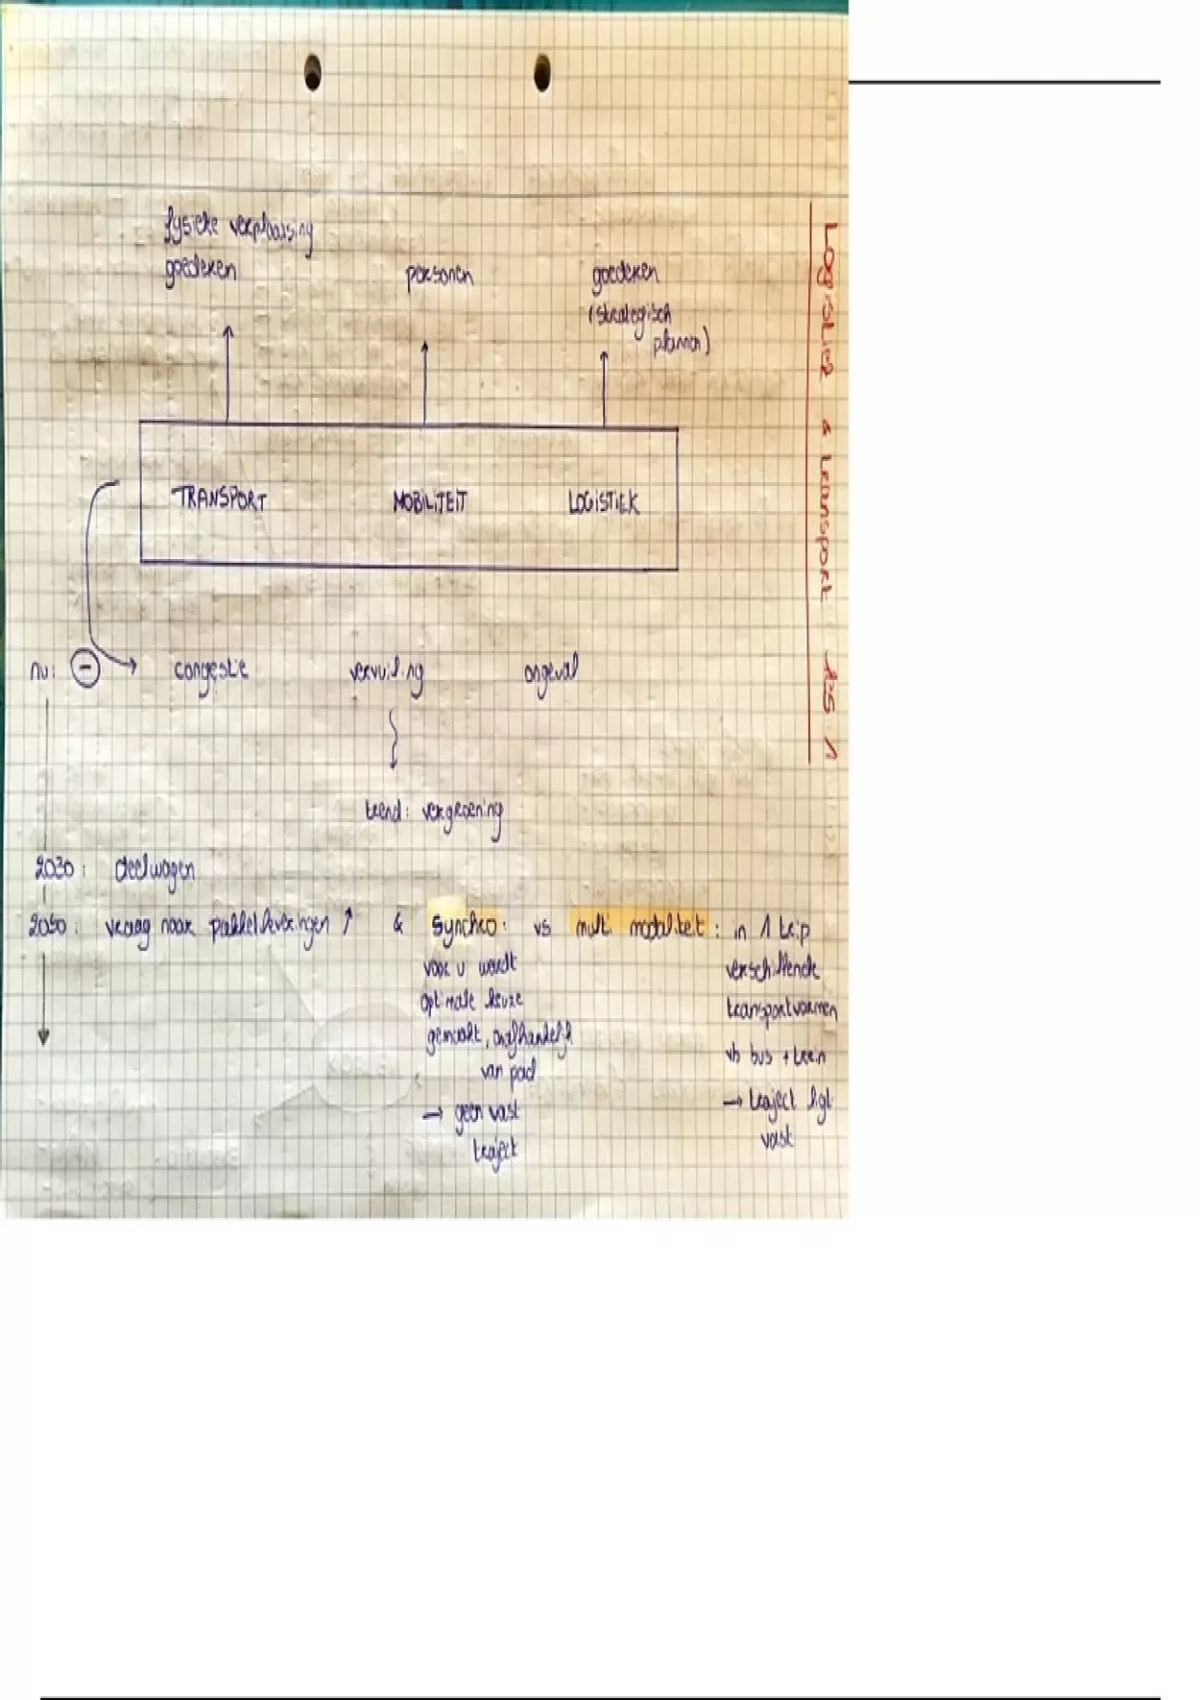 Logistiek & transport les 1
fysieke verplaatsing
goederen
personen
goederen
(strategisch
plannen)
TRANSPORT MOBILITEIT LOGISTIEK
nu: - → congestie vervuiling ongeval
trend: vergroening
2030: deelwagen
2050: vraag naar pakketleveringen ↑ & synchro: vs multi modaliteit: in 1 trip
voor u wordt
optimale keuze
gemaakt, onafhankelijk
van pad
→ geen vast
traject
verschillende
transportvormen
vb bus + trein
→ traject ligt
vast